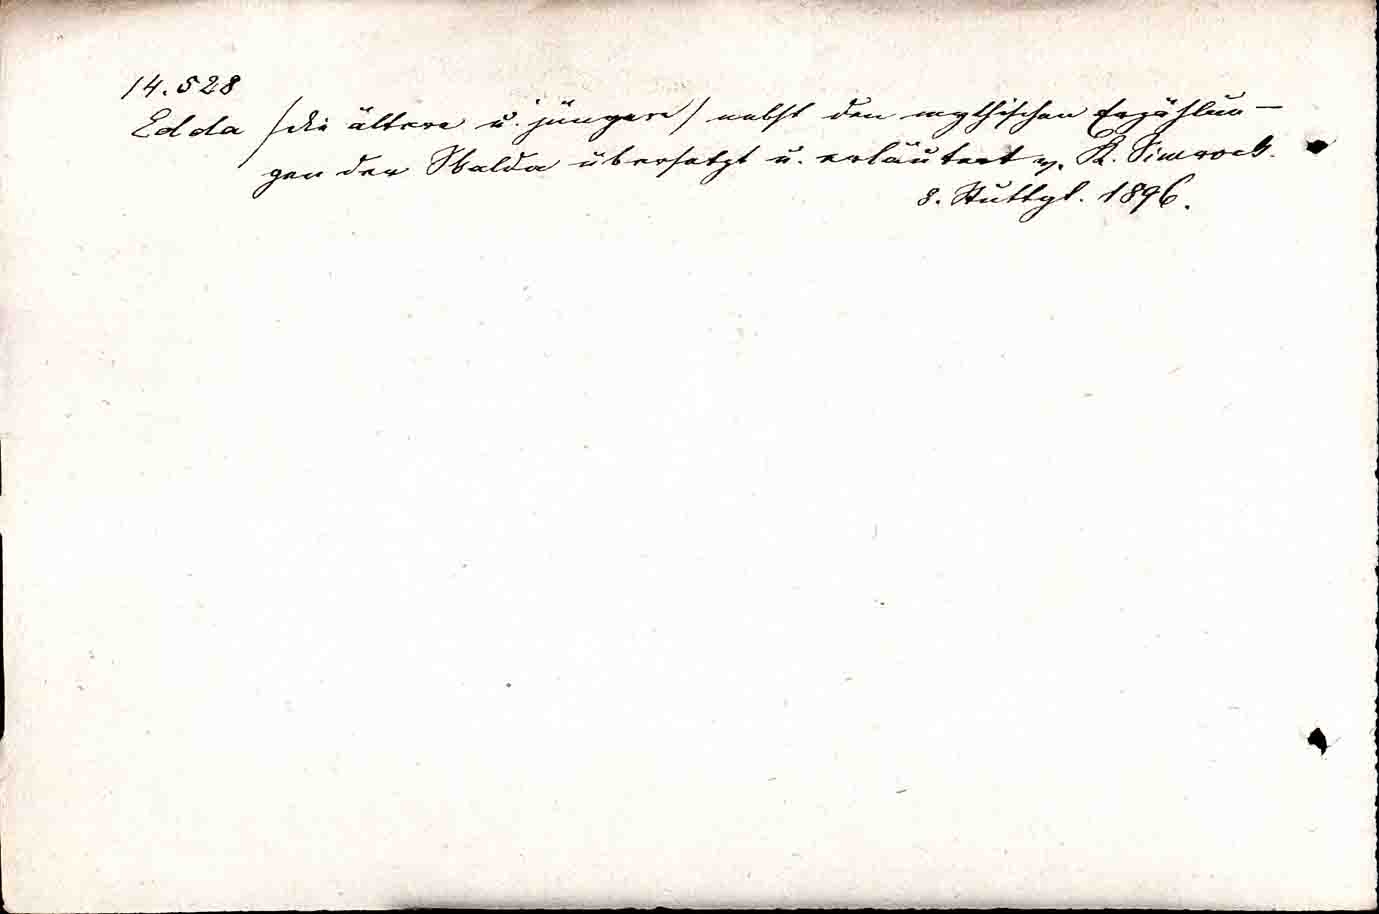 14.528
Edda (die ältere u. jüngere) nebst den mythischen Erzählun-
gen der Skalda übersetzt u. erläutert v. K. Simrock.
8. Stuttgt. 1896.